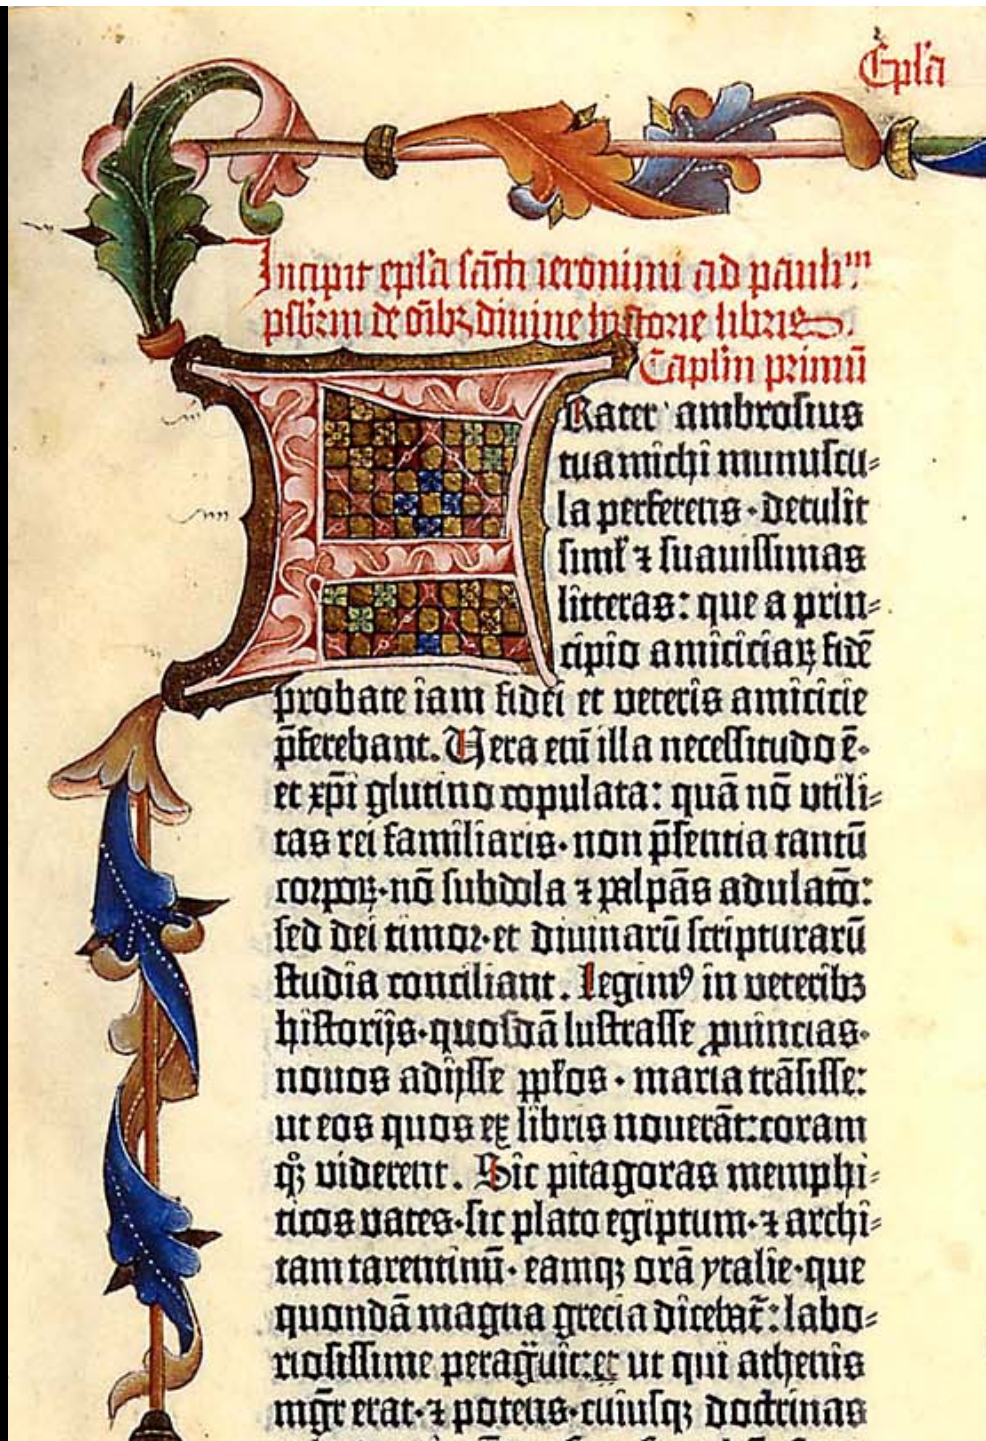 Epl'a
Incipit epl'a sancti ieronimi ad paulinum
presbiterum de omnibus divine historie libris.
Capl'm primu̅
Rater ambrosius
tua michi munuscu⸗
la perferens· detulit
siml' ⁊ suavissimas
litteras: que a prin⸗
cipio amiciciaꝝ fide̅
probate iam fidei et veteris amicicie
p̅ferebant. Vera eni̅ illa necessitudo e̅·
et xp̅i glutino copulata: qua̅ no̅ utili⸗
tas rei familiaris· non p̅sentia tantu̅
corpoꝝ· no̅ subdola ⁊ palpa̅s adulat̅o:
sed dei timor· et divinaru̅ scripturaru̅
studia conciliant. Legimꝰ in veteribꝫ
historijs· quosda̅ lustrasse ꝓvincias·
novos adijsse pp̅los· maria tra̅sisse:
ut eos quos ex libris noverāt: coram
qꝫ viderent. Sic pitagoras memphi⸗
ticos vates· sic plato egiptum· ⁊ archi⸗
tam tarentinu̅· eamqꝫ ora̅ ytalie· que
quonda̅ magna grecia dicebat̃: labo⸗
riosissime peragͣvit: et ut qui athenis
mg̅r erat· ⁊ potens· cuiusqꝫ doctrinas